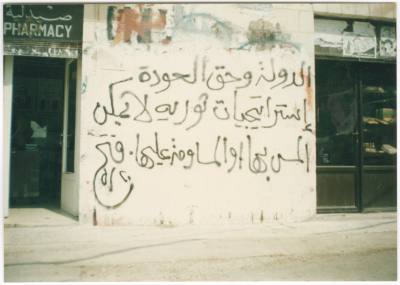 صيدلية
PHARMACY
الدولة وحق العودة
إستراتيجيات ثوريه لا يمكن
المس بها او المساومة عليها. فتح